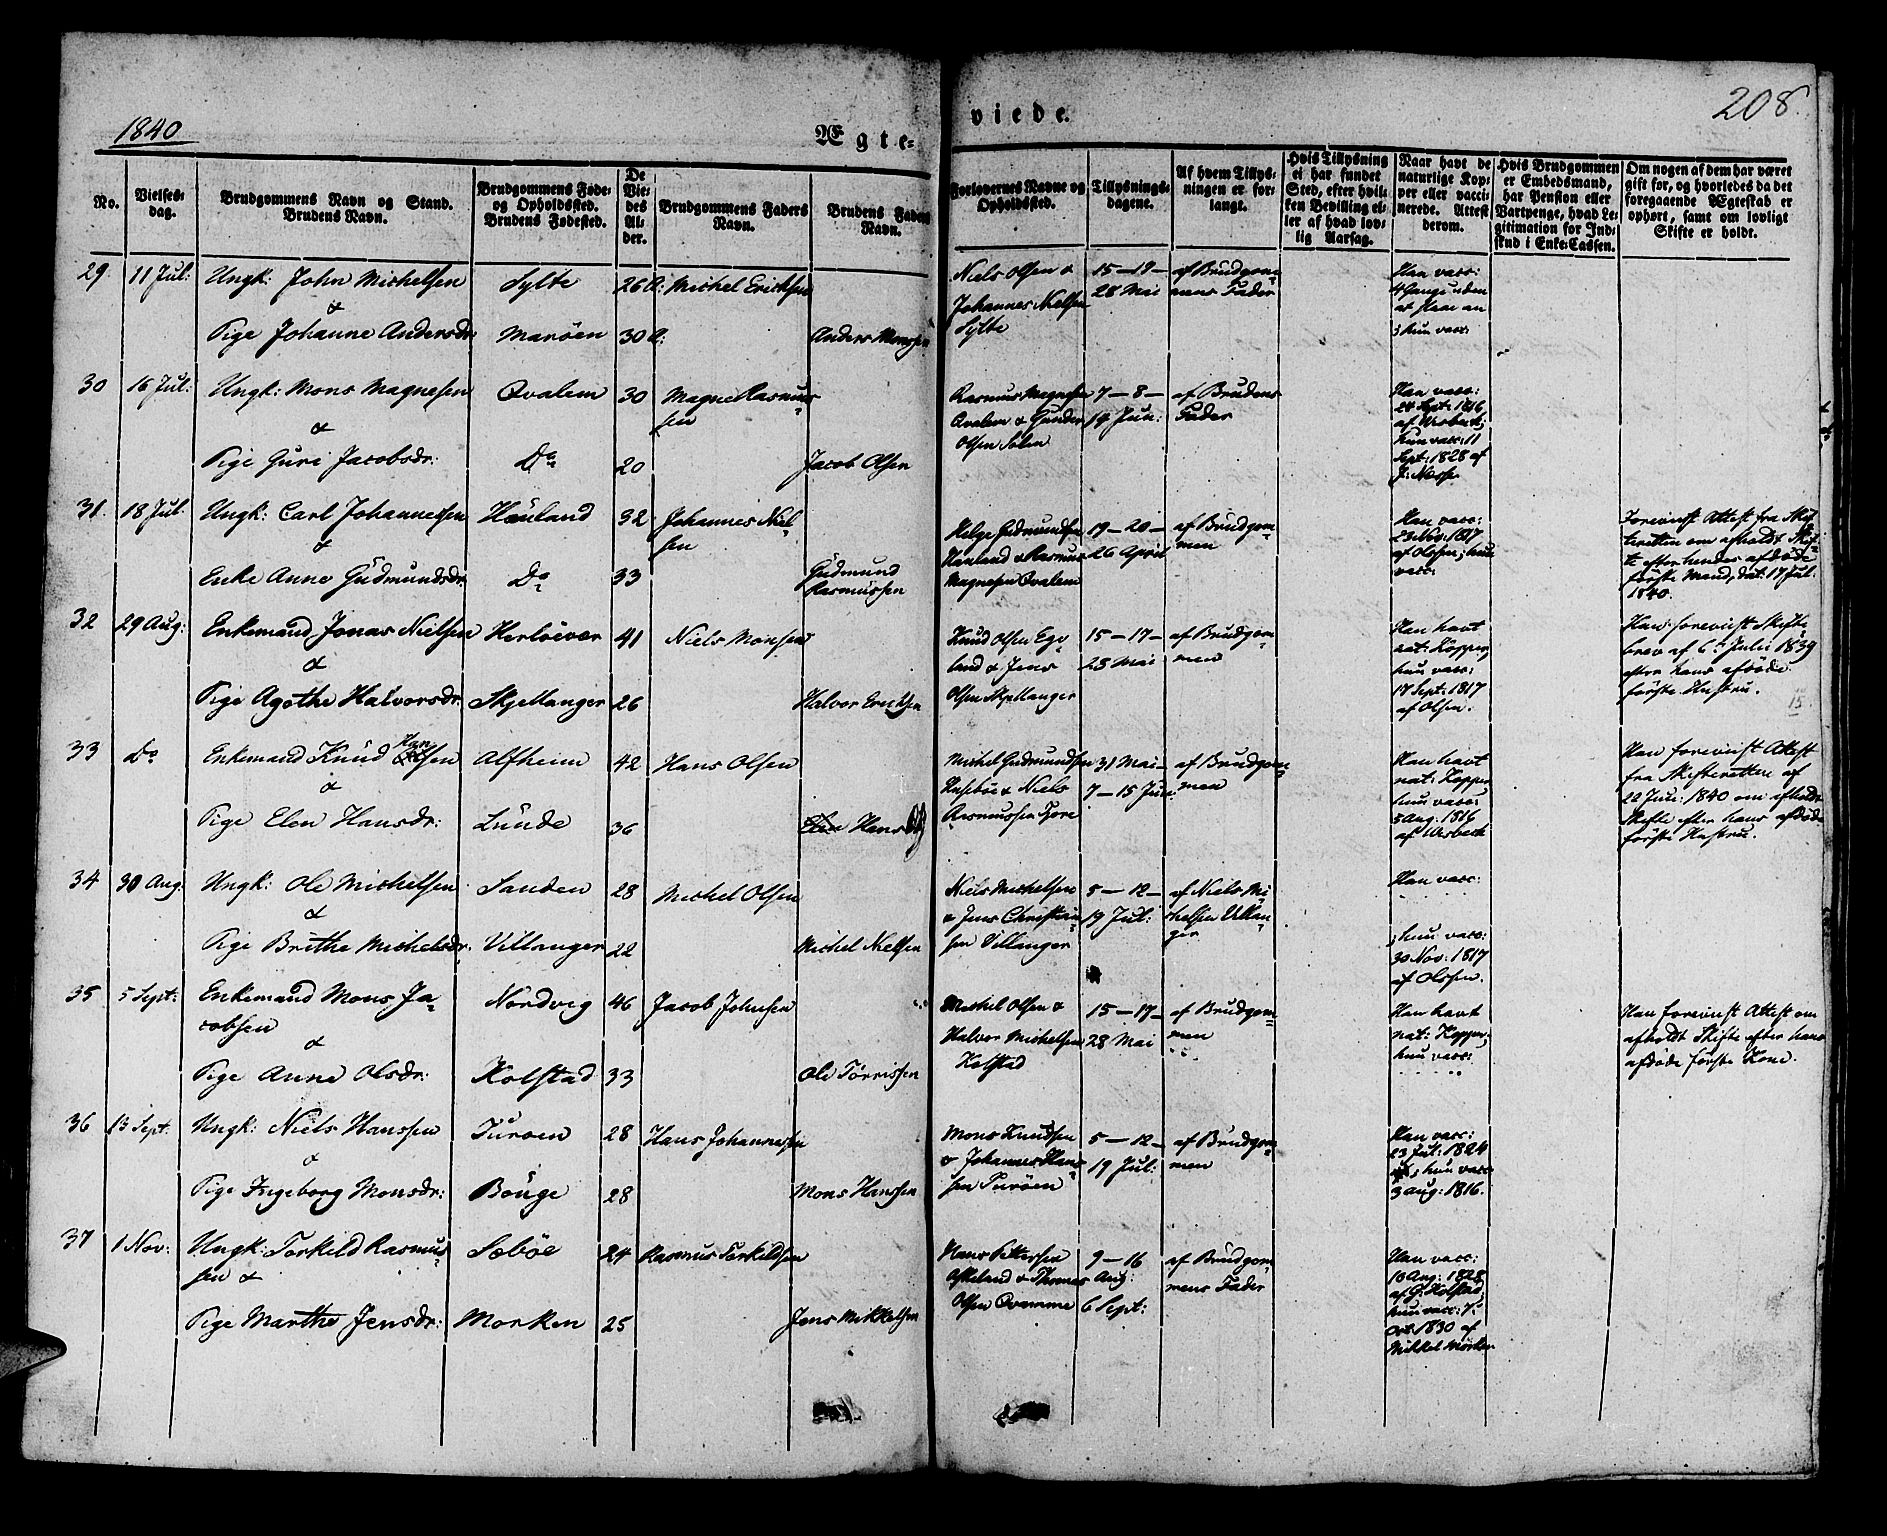 1840
Ægte-
viede.
208.
No.
Vielses-
dag.
Brudgommens Navn og Stand.
Brudens Navn.
Brudgommens Føde-
og Opholdssted.
Brudens Fødested.
De
Vie-
des
Al-
der.
Brudgommens Faders
Navn.
Brudens Faders
Navn.
Forlovernes Navne og
Opholdssted.
Tillysnings-
dagene.
Af hvem Tillys-
ningen er for-
langt.
Hvis Tillysning
ei har fundet
Sted, efter hvil-
ken Bevilling el-
ler af hvad lov-
lig Aarsag.
Naar havt de
naturlige Kop-
per eller vacci-
nerede. Attest
derom.
Hvis Brudgommen
er Embedsmand,
har Pension eller
Vartpenge, hvad Le-
gitimation for Ind-
skud i Enke-Cassen.
Om nogen af dem har været
gift før, og hvorledes da det
foregaaende Ægteskab er
ophørt, samt om lovligt
Skifte er holdt.
29. 11 Jul: Ungk: John Michelsen Sylte 26 A: Michel Ericksen
&
Pige Johanne Andersdr Marøen 30 A: Anders Monssen
Niels Olsen &
Johannes Nielsen
Sylte
15 — 19 —
28 Mai
af Brudgom-
mens Fader
Han vacc:
4 Gange uden
at slaae an
; hun vacc:
30 16 Jul: Ungk: Mons Magnesen Qvalem 30 Magne Rasmus-
sen
&
Pige Guri Jacobsdr: Do 20 Jacob Olsen
Rasmus Magnesen
Qvalem & Gunder
Olsen Solem
7 — 8 —
14 Jun:
af Brudens
Fader
Han vacc:
24 Sept: 1816
af Wesbech;
Hun vacc: 11
Sept: 1828 af
J: Nesse
31. 18 Jul Ungk: Carl Johannessen Håuland 32 Johannes Niel-
sen
&
Enke Anne Gudmundsdr. Do 33 Gudmund
Rasmussen
Helge Gudmundsen
Hauland & Rasmus
Magnesen Qvalem
19 — 20 —
26 April
af Brudgom-
men
Han vacc:
23 Nov: 1817
af Olssen; hun
vacc:
Foreviist Attest fra Skif-
teretten om afholdt Skif-
te efter hendes afdøde
første Mand, dat: 17 Jul:
1840.
32 29 Aug: Enkemand Jonas Nielsen Herløevær 41 Niels Monsen
&
Pige Agathe Halvorsdr. Skjellanger 26 Halvor Ericksen
Knud Olsen Ege-
land & Jens
Olsen Skjellanger
15 — 17 —
25 Mai
af Brudgom-
men
Han havt
nat: Kopper;
hun vacc:
17 Sept: 1817
af Olsen.
Han foreviist Skifte-
brev af 6te Julii 1839
efter hans afdøde
første Hustru.
15
33 Do Enkemand Knud Han
sen Alfheim 42 Hans Olsen
&
Pige Elen Hansdr: Lunde 36 Hans
Michel Gudmundsen
Husebøe & Niels
Rasmussen Fjore
31 Mai —
7 — 15 Jun:
af Brudgom-
men
Han havt
nat: Kopper
hun vacc:
5 Aug: 1816
af Wesbech
Han foreviist Attest
fra Skifteretten af
20 Juni: 1840 om afholdt
Skifte efter hans afdøde
første Hustru.
34 30 Aug: Ungk: Ole Michelsen Sanden 28 Michel Olsen
&
Pige Brithe Michelsdr. Villanger 22 Michel Nielsen
Niels Michelsen
& Jens Christian-
sen Villanger
5 — 12 —
19 Jul:
af Niels Mi-
chelsen Villan-
ger
Han vacc:
; hun vacc:
30 Nov: 1817
af Olssen.
35 5 Sept: Enkemand Mons Ja-
cobsen Nordvig 46 Jacob Johnsen
&
Pige Anne Olsdr: Kolstad 33 Ole Tørrissen
Michel Olsen &
Halvor Michelsen
Kolstad
15 — 17 —
28 Mai
af Brudgom-
men
Han havt
nat: Kopper;
hun vacc:
Han foreviist Attest om
afholdt Skifte efter hans
afdøde første Kone.
36 13 Sept. Ungk: Niels Hanssen Turøen 28 Hans Johannessen
&
Pige Ingeborg Monsdr: Bouge 28 Mons Hanssen
Mons Knudsen
& Johannes Hans-
sen Turöen
5 — 12 —
19 Jul:
af Brudgom-
men
Han vacc:
23 Jul: 1824
; hun vacc:
3 Aug: 1816.
37 1 Nov: Ungk: Torkeld Rasmus-
sen & Sæbøe 24 Rasmus Torkeldsen
Pige Marthe Jensdr: Morken 25 Jens Mikkelsen
Hans Pettersen
Askeland & Thomas
Olsen Qvamme
9 — 16
Aug:
6 Sept:
af Brudgom-
mens Fader
Han vacc:
10 Aug: 1828
af G: Kolstad;
hun vacc: 7:
Oct: 1830 af
Mikkel Mørken